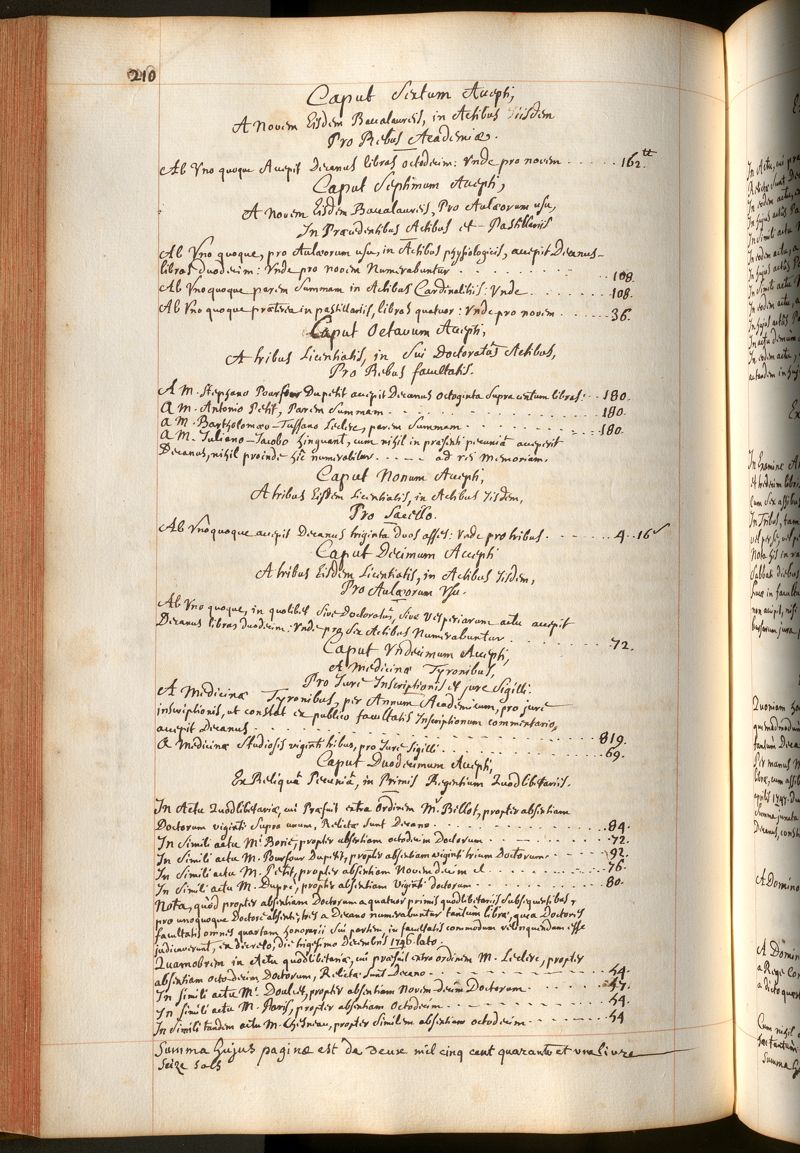 210
Caput Sextum Accepti,
A Novem Eisdem Baccalaureis, in Actibus Iisdem
Pro Rebus Academiæ.
Ab Vno quoque Accepit Decanus libras octodecim: Vnde pro novem . . . . . . 162 tt
Caput Septimum Accepti,
A Novem Eisdem Baccalaureis, Pro Aulæorum usu,
In Præcedentibus Actibus et Pastillariis
Ab Vno quoque, pro Aulæorum usu, in Actibus physiologicis, accepit Decanus
libras duodecim: Vnde pro novem Numerabuntur . . . . . . 108.
Ab Vnoquoque parem Summam in Actibus Cardinalitiis: Vnde . . . . . . 108.
Ab Vno quoque præterea in pastillariis, libras quatuor: Vnde pro novem . . . . . . 36.
Caput Octavum Accepti,
A tribus Licentiatis, in Sui Doctoratûs Actibus,
Pro Rebus facultatis.
A M. Stephano Pourfour Dupetit accepit Decanus octoginta supra centum libras: . . 180.
a M. Antonio Petit, Parem Summam . . . . . . 180.
a M. Bartholomæo-Tussano Leclerc, parem Summam . . . . . . 180.
a M. Juliano-Jacobo hinquant, cum nihil in præsenti pecuniâ acceperit
Decanus, nihil proinde hîc numerabitur . . . . . ad rei Memoriam.
Caput Nonum Accepti,
A tribus Eisdem Licentiatis, in Actibus Iisdem,
Pro Sacello.
Ab Vnoquoque accepit Decanus triginta duos asses: Vnde pro tribus . . . . . . 4 . 16 s
Caput Decimum Accepti
A tribus Eisdem Licentiatis, in Actibus Iisdem,
Pro Aulæorum Vsu.
Ab Vno quoque, in quolibet sive Doctoratûs, sive Vesperiarum actu accepit
Decanus libras duodecim: Vnde pro Sex Actibus Numerabuntur . . . . . . 72.
Caput Vndecimum Accepti,
A Medicinæ Tyronibus,
Pro Jure Inscriptionis et jure Sigilli.
A Medicinæ Tyronibus, per Annum Academicum, pro jure
inscriptionis, ut constat ex publico facultatis Inscriptionum commentario,
accepit Decanus . . . . . . 819.
a Medicinæ Studiosis viginti tribus, pro Jure Sigilli . . . . . . 69.
Caput Duodecimum Accepti,
Ex Reliquâ Pecuniâ, in Primis Regentium Quodlibetariis.
In Actu Quodlibetariæ, cui Præfuit extra ordinem Mr. Billot, propter absentiam
Doctorum viginti supra unum, Relictæ sunt Decano . . . . . . 84.
In Simili actu Mr. Borie, propter absentiam octodecim Doctorum . . . . . . 72.
In Simili actu M. Pourfour Dupetit, propter absentiam viginti trium Doctorum . . . . . . 92.
In Simili actu M. Petit, propter absentiam Novemdecim d . . . . . . 76.
In Simili actu M. Dupré, propter absentiam Viginti doctorum . . . . . . 80.
Nota, quòd propter absentiam Doctorum a quatuor primis quodlibetariis subsequentibus,
pro unoquoque Doctore absente, tres a Decano numerabuntur tantùm libræ, quia Doctores
facultatis omnes quartam honorarii Sui partem, in facultatis commodum relinquendam esse
judicaverunt, ex decreto, die trigesimo Decembris 1746. lato.
Quamobrem in actu quodlibetariæ, cui præfuit extra ordinem M. Leclerc, propter
absentiam octodecim Doctorum, Relictæ Sunt Decano . . . . . . 54.
In Simili actu Mr. Doulcet, propter absentiam Novemdecim Doctorum . . . . . . 57.
In Simili actu M. Paris, propter absentiam octodecim . . . . . . 54.
In Simili tandem actu M. Chesneau, propter Similem absentiam octodecim . . . . . . 54
Summa hujus paginæ est de deux mil cinq cent quarante et une livre
seize sols